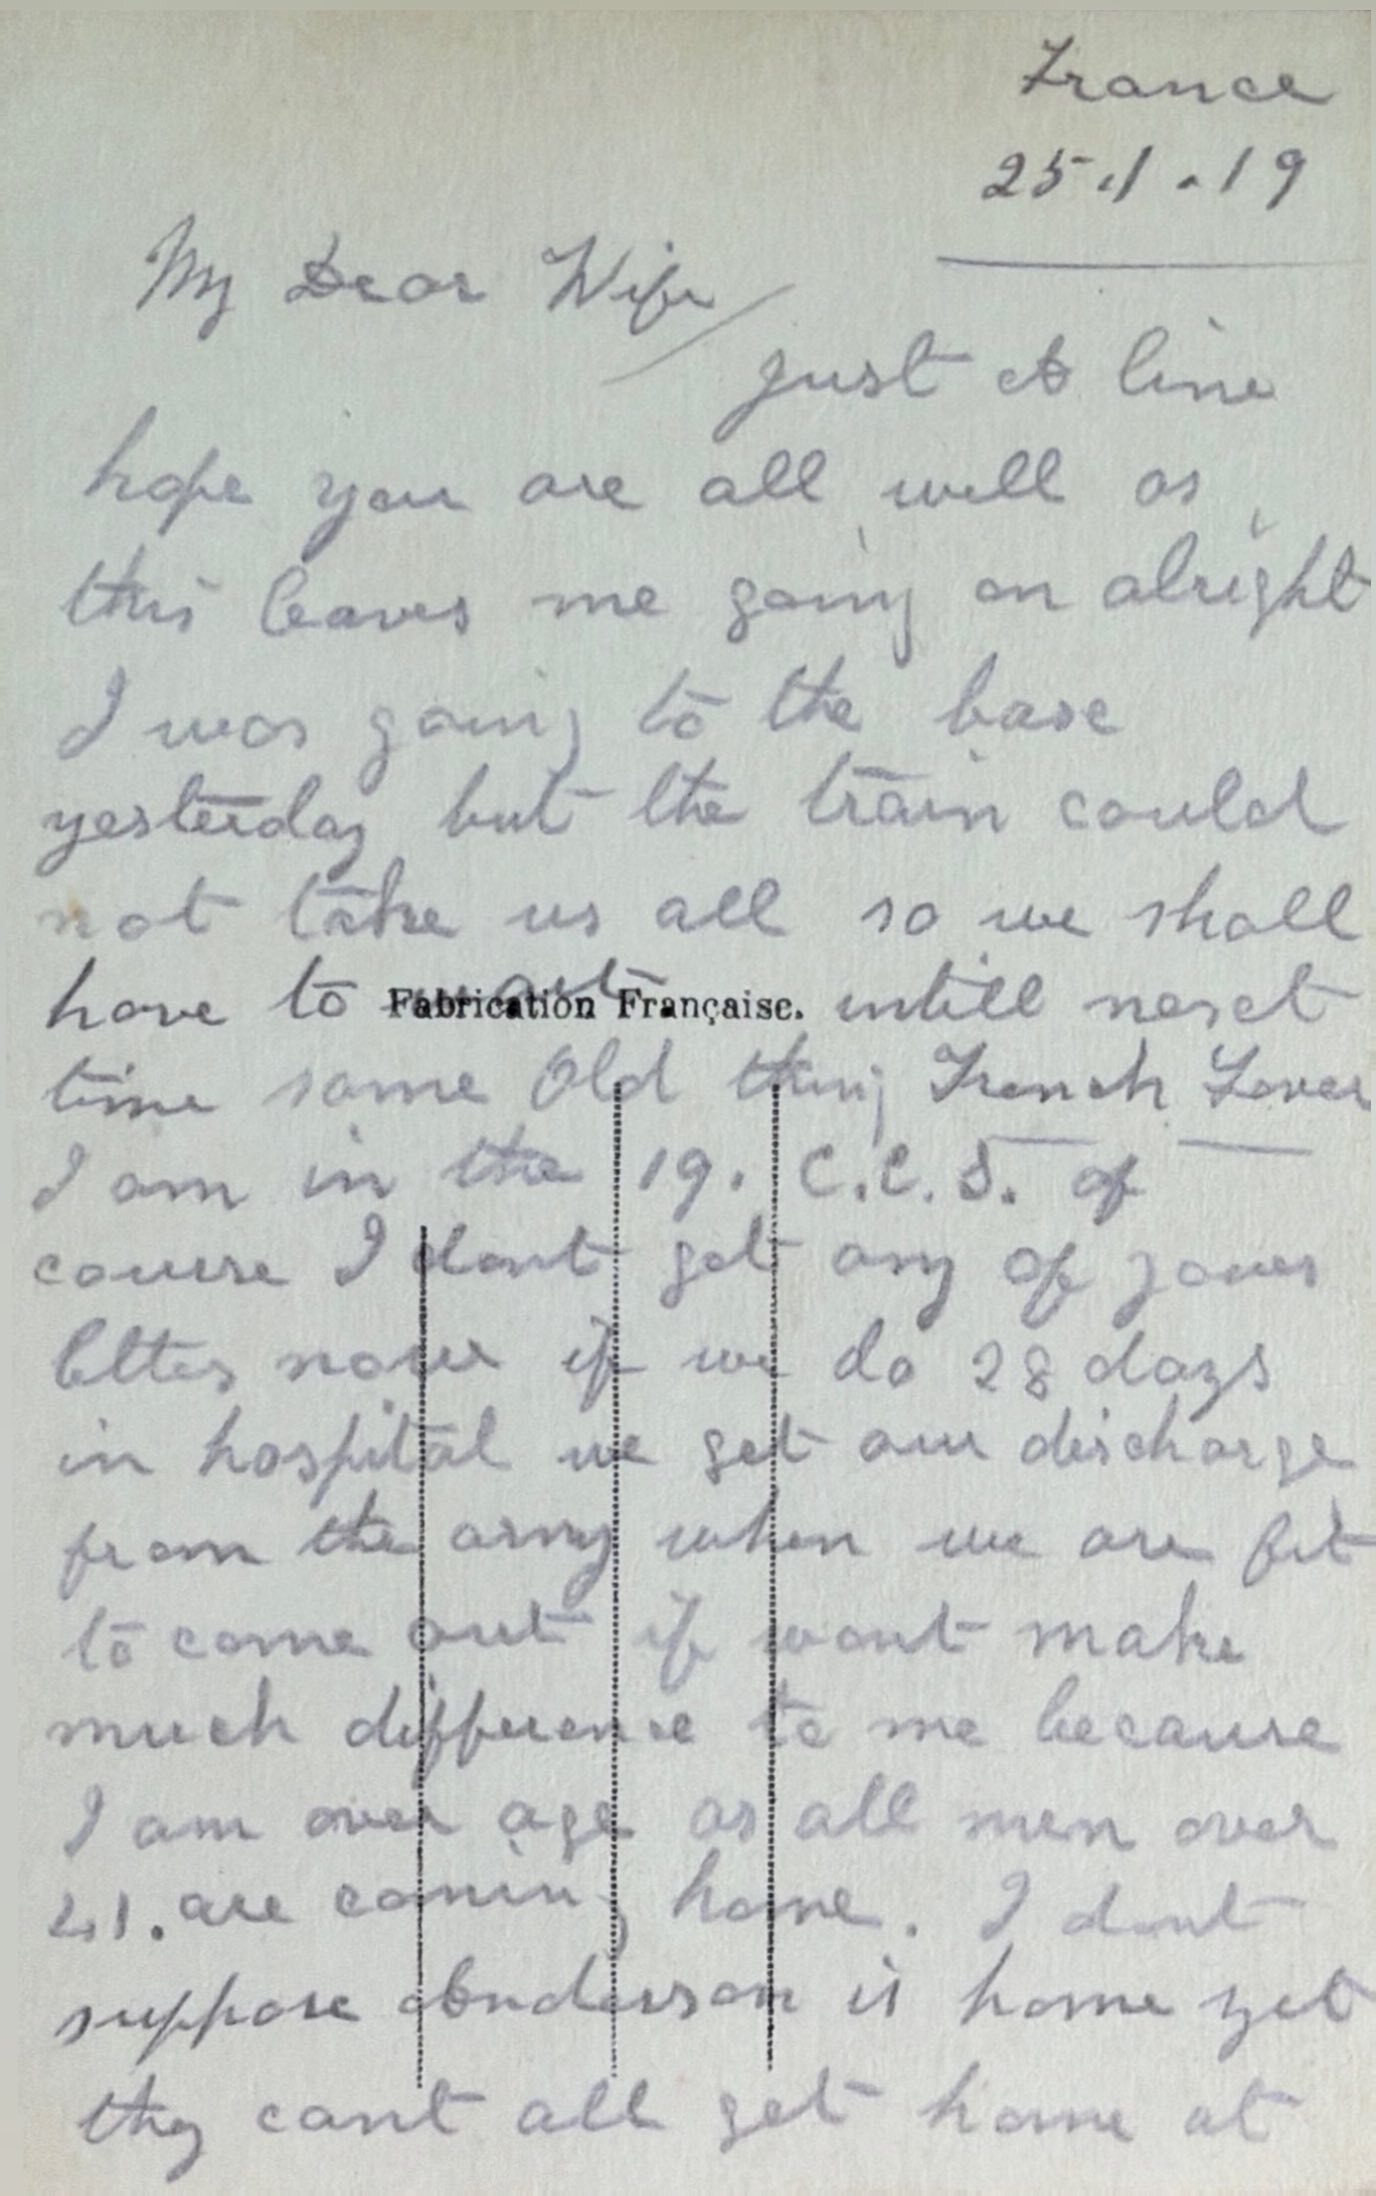 France
25.1.19
My Dear Wife
just a line
hope you are all well as
this leaves me going on alright
I was going to the base
yesterday but the train could
not take us all so we shall
have to wait untill next
Fabrication Française.
time same Old thing Trench Fever
I am in the 19. C.C.S. of
course I dont get any of youer
letters now if we do 28 days
in hospital we get our discharge
from the army when we are fit
to come out it wont make
much difference to me because
I am over age as all men over
41. are coming home. I dont
suppose Anderson is home yet
thy cant all get home at